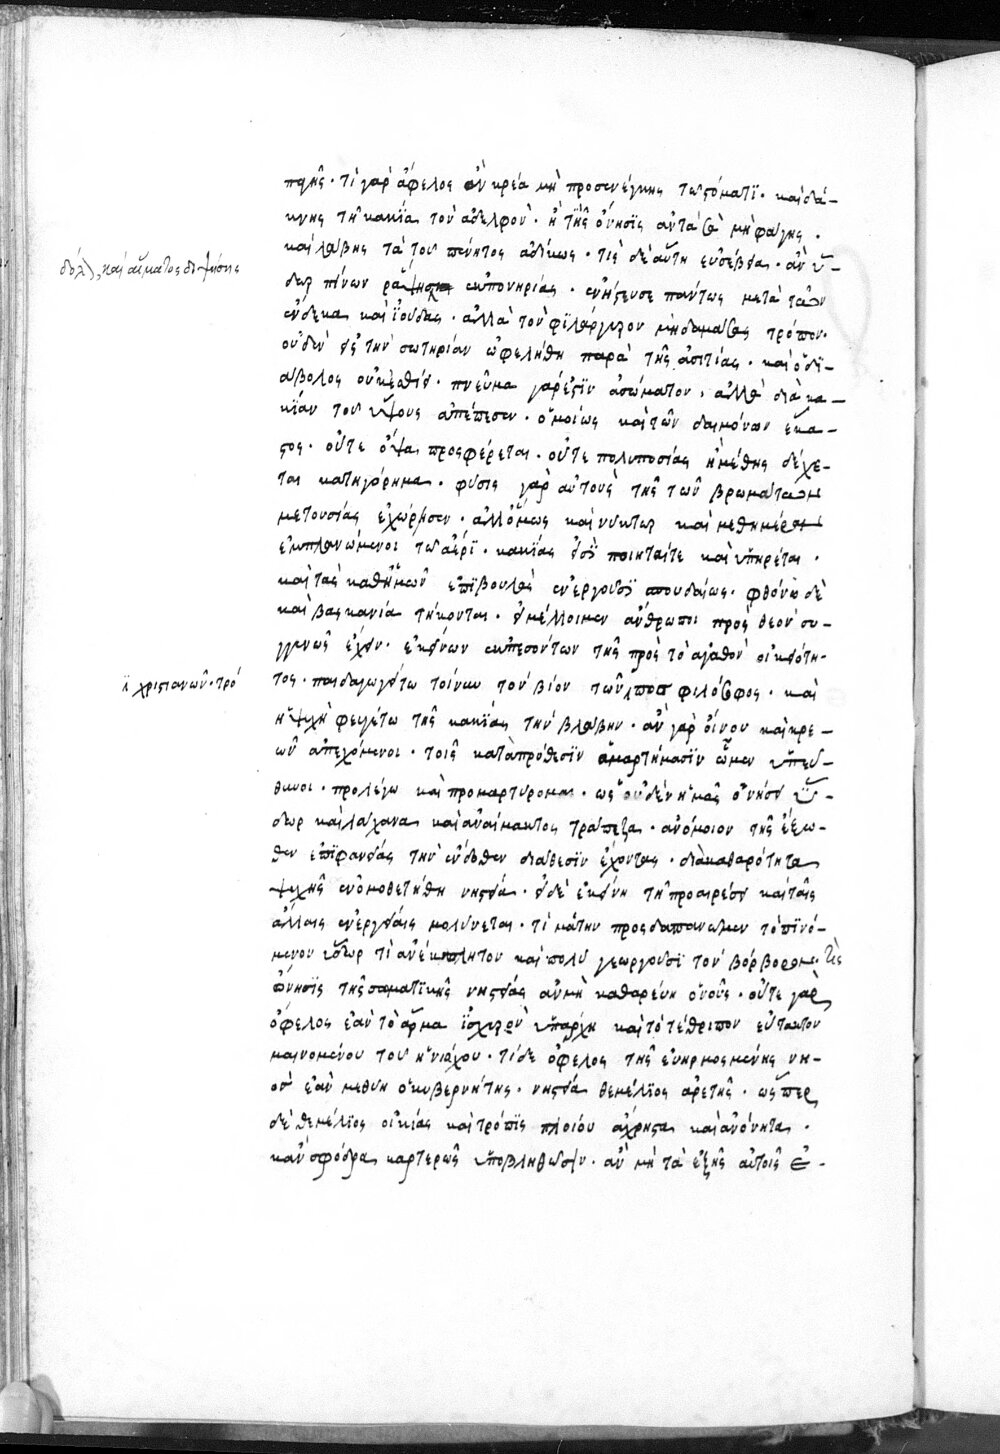 πηγῆς · τί γὰρ ὄφελος ἂν κρέα μὴ προσενέγκῃς τῷ στόματϊ · καὶ δά-
κνῃς τῇ κακίᾳ τὸν ἀδελφὸν · ἢ τίς ὄνησϊς ἂν τὰ σὰ μὴ φάγῃς ·
καὶ λάβῃς τὰ τοῦ πένητος ἀδίκως · τίς δὲ αὕτη εὐσέβεια · ἂν ὕ-
δωλ, καὶ αἵματος διψήσῃς
δωρ πίνων ῥάψῃς ἐκ πονηρίας · ἐνήστευσε πάντως μετὰ τῶν
ἕνδεκα καὶ ἰούδας · ἀλλὰ τὸν φϊλάργυρον μὴ δαμάσας τρόπον ·
οὐδὲν εἰς τὴν σωτηρίαν ὠφελήθη παρὰ τῆς ἀσιτίας · καὶ ὁ δϊ-
άβολος οὐκ ἐσθίει · πνεῦμα γάρ ἐστϊν ἀσώματον · ἀλλὰ διὰ κα-
κίαν τοῦ ὕψους ἀπέπεσεν · ὁμοίως καὶ τῶν δαιμόνων ἕκα-
στος · οὔτε ὄψα προσφέρεται · οὔτε πολυποσίας ἢ μέθης δέχε-
ται κατηγόρημα · φύσις γὰρ αὐτοὺς τῆς τῶν βρωμάτων
μετουσίας ἐχώρησεν · ἀλλ' ὅμως καὶ νύκτωρ καὶ μεθημέραν
ἐμπλανώμενοι τῷ ἀέρϊ · κακίας εἰσὶ ποιηταί τε καὶ ὑπηρέται ·
καὶ τὰς καθ' ἡμῶν ἐπϊβουλὰς ἐνεργοῦσϊ σπουδαίως · φθόνῳ δὲ
καὶ βασκανίᾳ τήκονται · εἰ μέλλοιμεν ἄνθρωποι πρὸς θεὸν συ-
γγενῶς ἔχειν · ἐκείνων ἐκπεσόντων τῆς πρὸς τὸ ἀγαθὸν οἰκειότη-
ἢ χριστιανῶν · τρό
τος · παιδαγωγείτω τοίνυν τὸν βίον τῶν φιλόσοφος · καὶ
ἡ ψυχὴ φευγέτω τῆς κακίας τὴν βλάβην · ἂν γὰρ οἴνου καὶ κρε-
ῶν ἀπεχόμενοι · τοῖς κατὰ πρόθεσϊν ἁμαρτήμασϊν ὦμεν ὑπεύ-
θυνοι · προλέγω καὶ προμαρτύρομαι · ὡς οὐδὲν ἡμᾶς ὀνήσει ὕ-
δωρ καὶ λάχανα καὶ ἀναίμακτος τράπεζα · ἀνόμοιον τῆς ἔξω-
θεν ἐπϊφανείας τὴν ἔνδοθεν διάθεσϊν ἔχοντας · διὰ καθαρότητα
ψυχῆς ἐνομοθετήθη νηστεία · εἰ δὲ ἐκείνη τῇ προαιρέσει καὶ ταῖς
ἄλλαις ἐνεργείαις μολύνεται · τί μάτην προσδαπανῶμεν τὸ πϊνό-
μενον ὕδωρ τί ἀνέκπλητον καὶ πολὺ γεωργοῦσϊ τὸν βόρβορον · τίς
ὄνησϊς τῆς σωματϊκῆς νηστείας ἂν μὴ καθαρεύῃ ὁ νοῦς · οὔτε γὰρ
ὄφελος ἐὰν τὸ ἅρμα ἰσχυρὸν ὑπάρχῃ καὶ τὸ τέθριππον εὔτακτον
μαινομένου τοῦ ἡνιόχου · τί δὲ ὄφελος τῆς εὐηρμοσμένης νη-
ὸς ἐὰν μεθύῃ ὁ κυβερνήτης · νηστεία θεμέλϊος ἀρετῆς · ὥσπερ
δὲ θεμέλϊος οἰκίας καὶ τρόπϊς πλοίου ἄχρηστα καὶ ἀνόνητα ·
κἂν σφόδρα καρτερῶς ὑποβληθῶσιν · ἂν μὴ τὰ ἑξῆς αὐτοῖς ἐ-